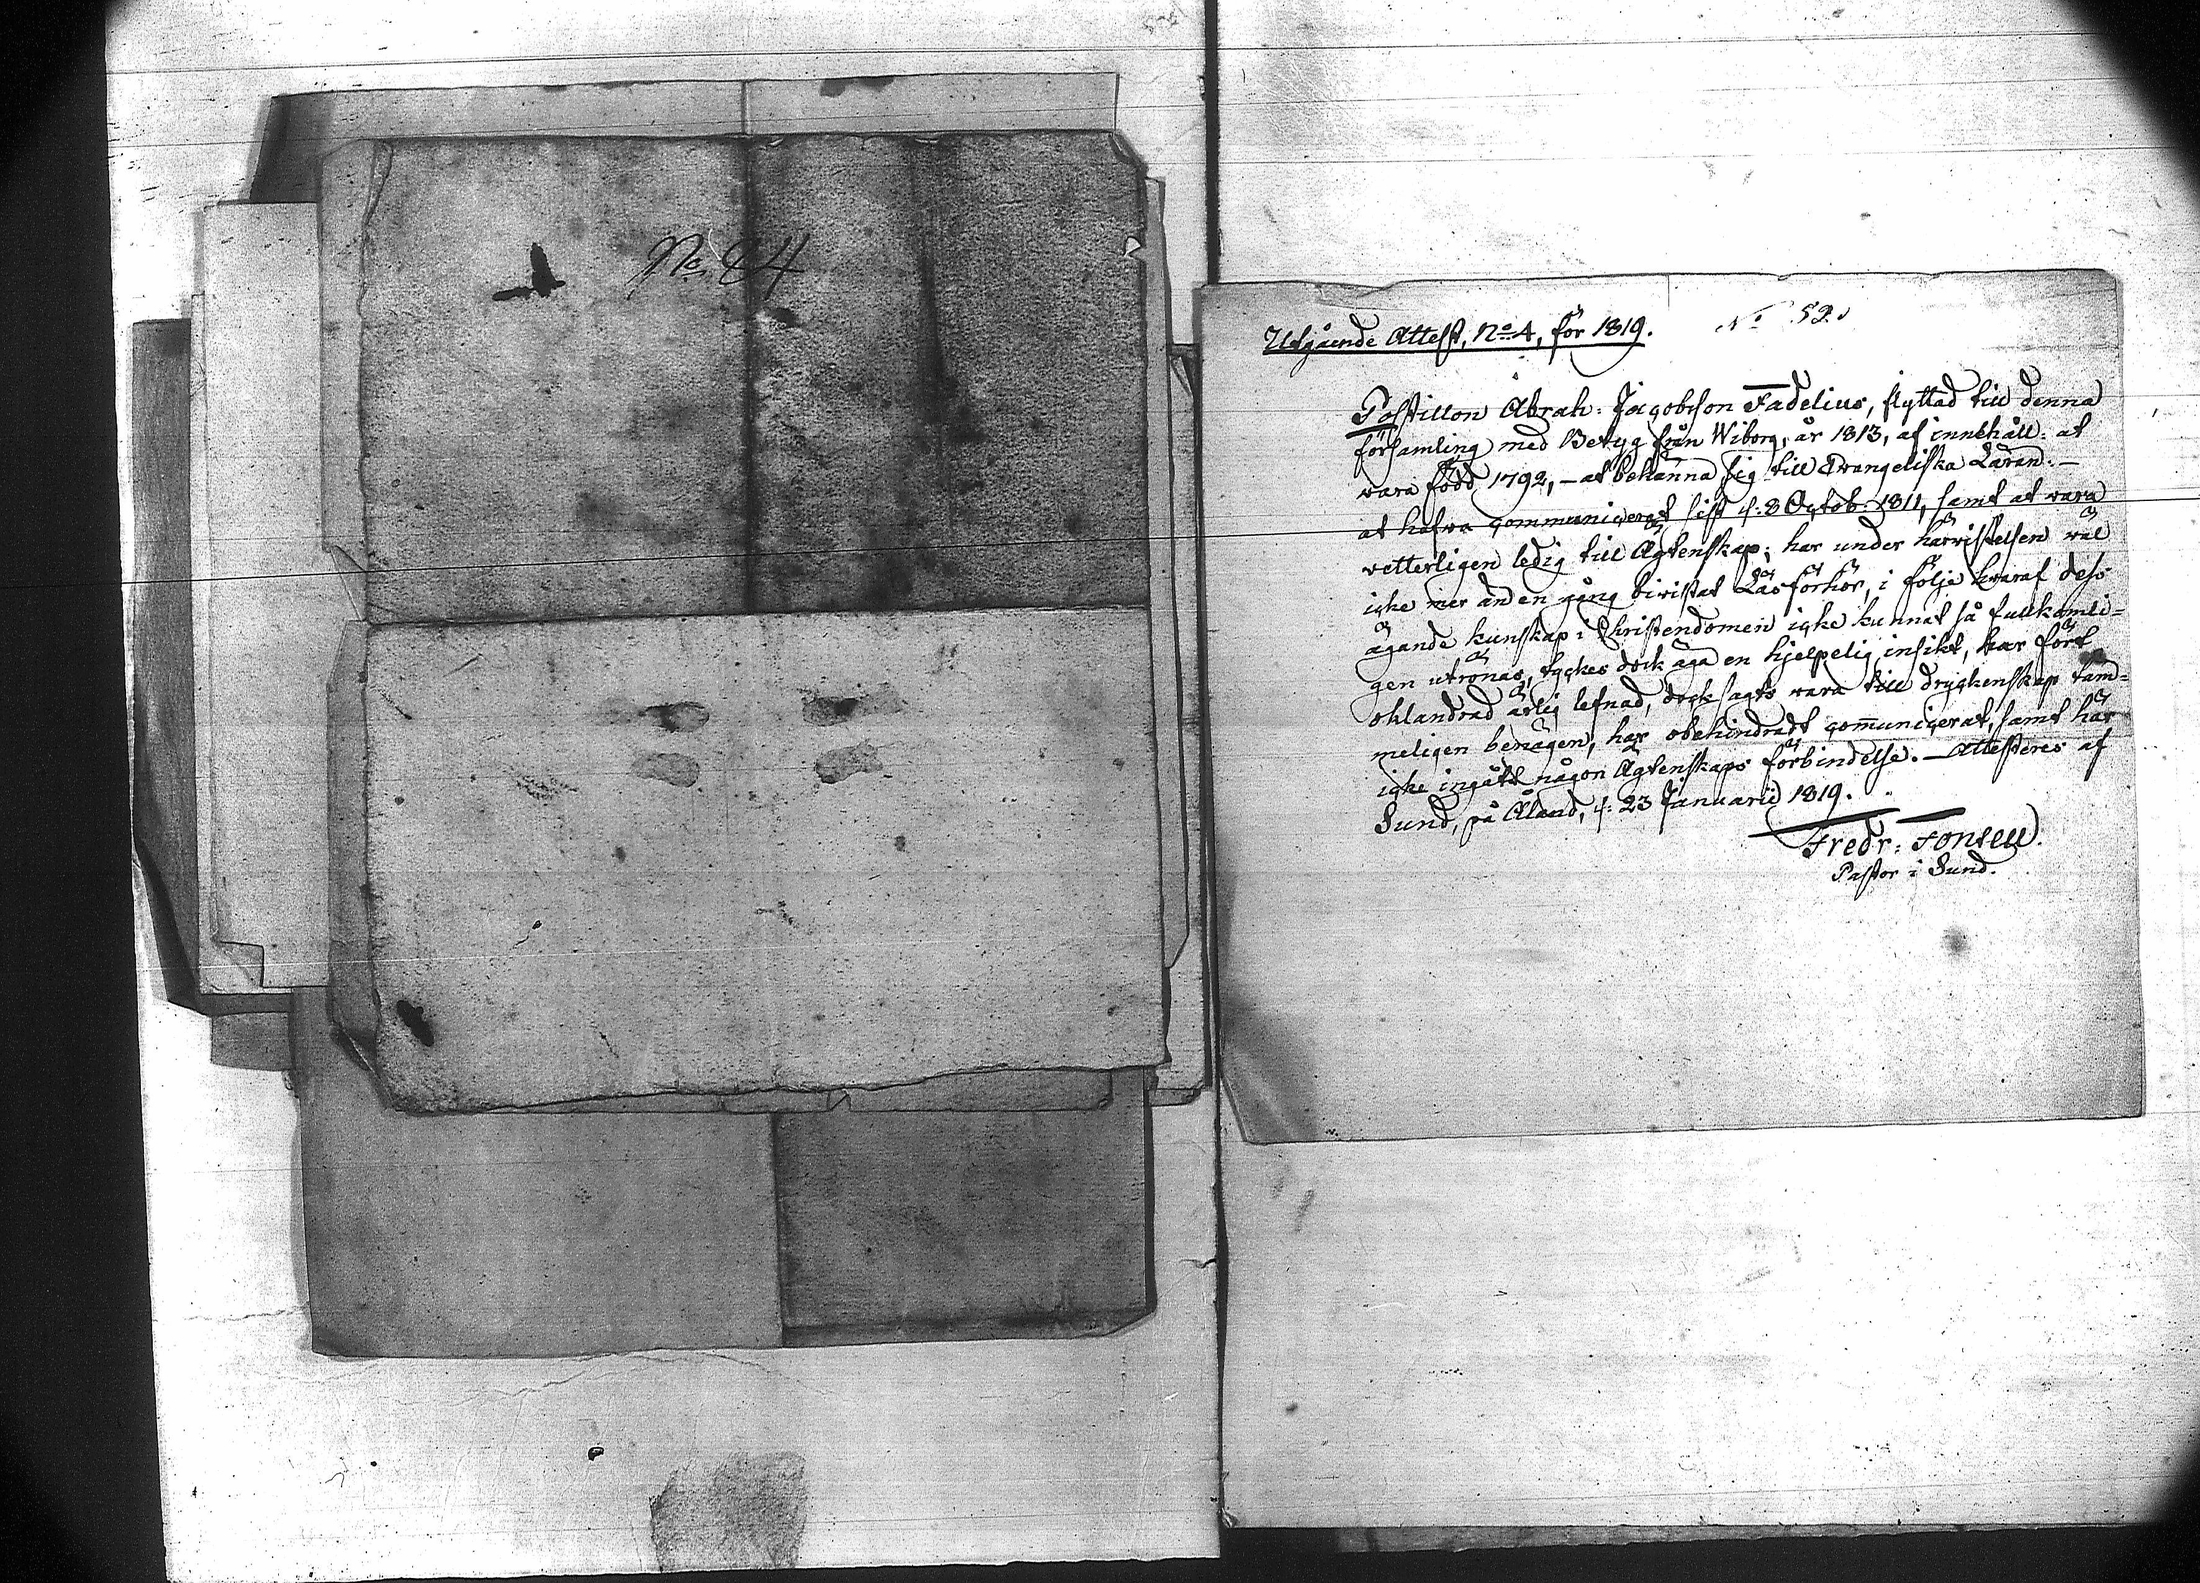 No 24
Utgående Attest, No 4, för 1819.
No 52.
Postillon Abrah: Jacobsson Fadelius, flyttad till denna
församling med Betyg från Wiborg, år 1813, af innehåll: at
vara född 1792, – at bekänna sig till Evangeliska Läran: –
at hafva communicerat sist d: 8 Octob: 1811, samt at vara
vetterligen ledig till Ägtenskap; har under härvistelsen väl
icke mer än en gång bivistat Läsförhör, i följe hvaraf dess
ägande kunskap i Christendomen icke kunnat så fullkomli=
gen utrönas, tyckes dock äga en hjelpelig insikt, har fört
oklandrad ärlig lefnad, dock sagts vara till dryckenskap täm=
meligen benägen, har obehindradt communicerat, samt här
icke ingått någon Ägtenskaps förbindelse. – Attesteres af
Sund, på Åland, d: 23 Januarii 1819.
Fredr:
Pastor i Sund.